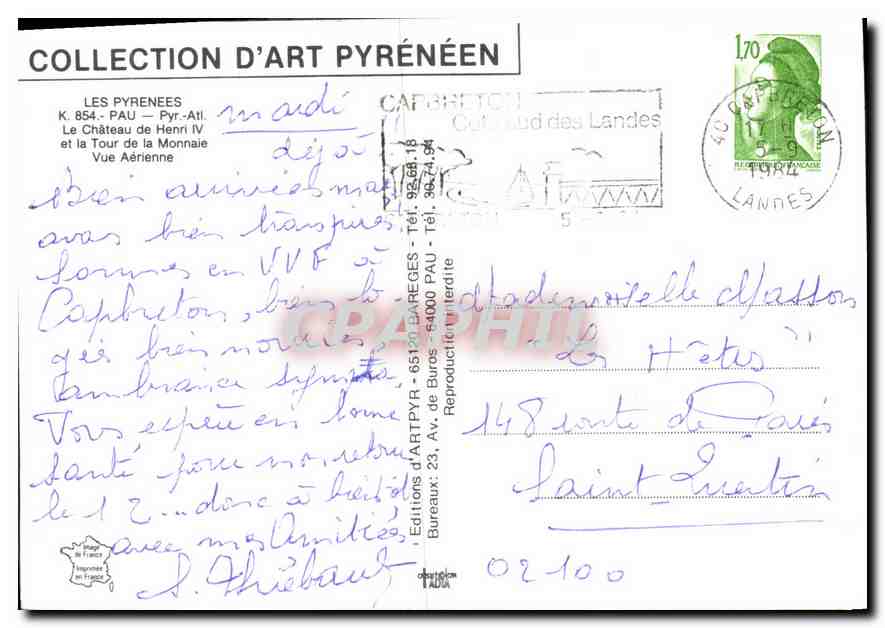 COLLECTION D'ART PYRÉNÉEN
LES PYRENEES
K. 854.- PAU — Pyr.-Atl.
Le Château de Henri IV
et la Tour de la Monnaie
Vue Aérienne
mardi
déjà
Bien arrivées mais
avons bien transpiré
sommes en VVF à
Capbreton, bien lo-
gés bien nourries,
ambiance sympa.
Vous espère en bonne
santé pour moi, retour
le 12... donc à bientôt
avec mes Amitiés
S. Thiébaut
Image
de France
Imprimée
en France
- Editions d'ARTPYR - 65120 BAREGES - Tél. 92.68.18
Bureaux: 23, Av. de Buros - 64000 PAU - Tél. 30.74.94
Reproduction interdite
CAPBRETON
Côte sud des Landes
1,70
40 CAPBRETON
17 H
5-9
1984
LANDES
CPAPHIL
Mademoiselle Masson
"Les Hêtres"
148 route de Paris
Saint Quentin
02100